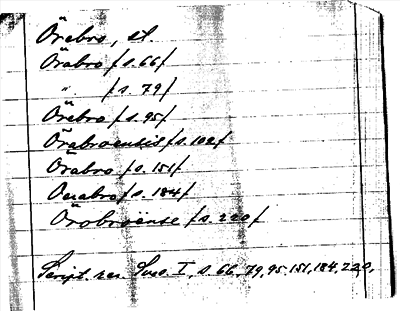 Örebro, st.
Örabro /s. 66/
" /s. 79/
Örebro /s. 95/
Örabroensis /s. 102/
Örabro /s. 151/
Oerabro /s. 184/
Örobroense /s. 220/
Script. rer. Svec. I, s. 66, 79, 95, 151, 184, 220.